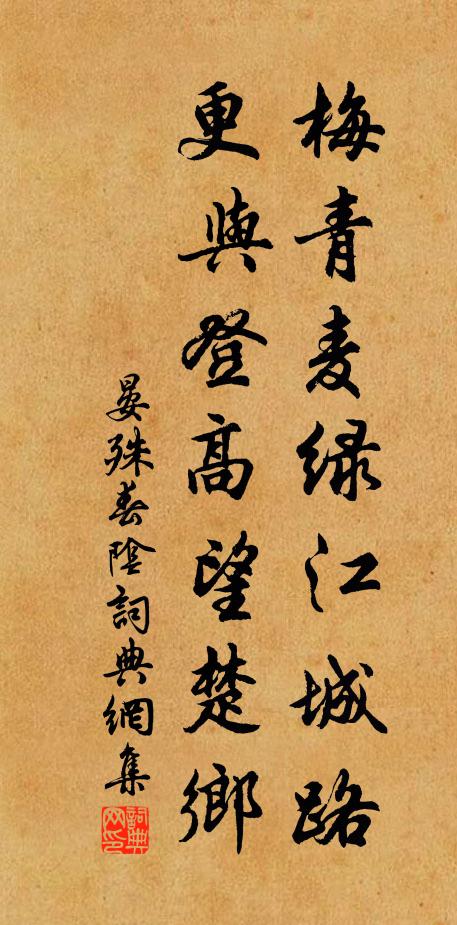 梅青麦绿江城路
更與登高望楚鄉
晏殊春陰詞典網集
詞典网印